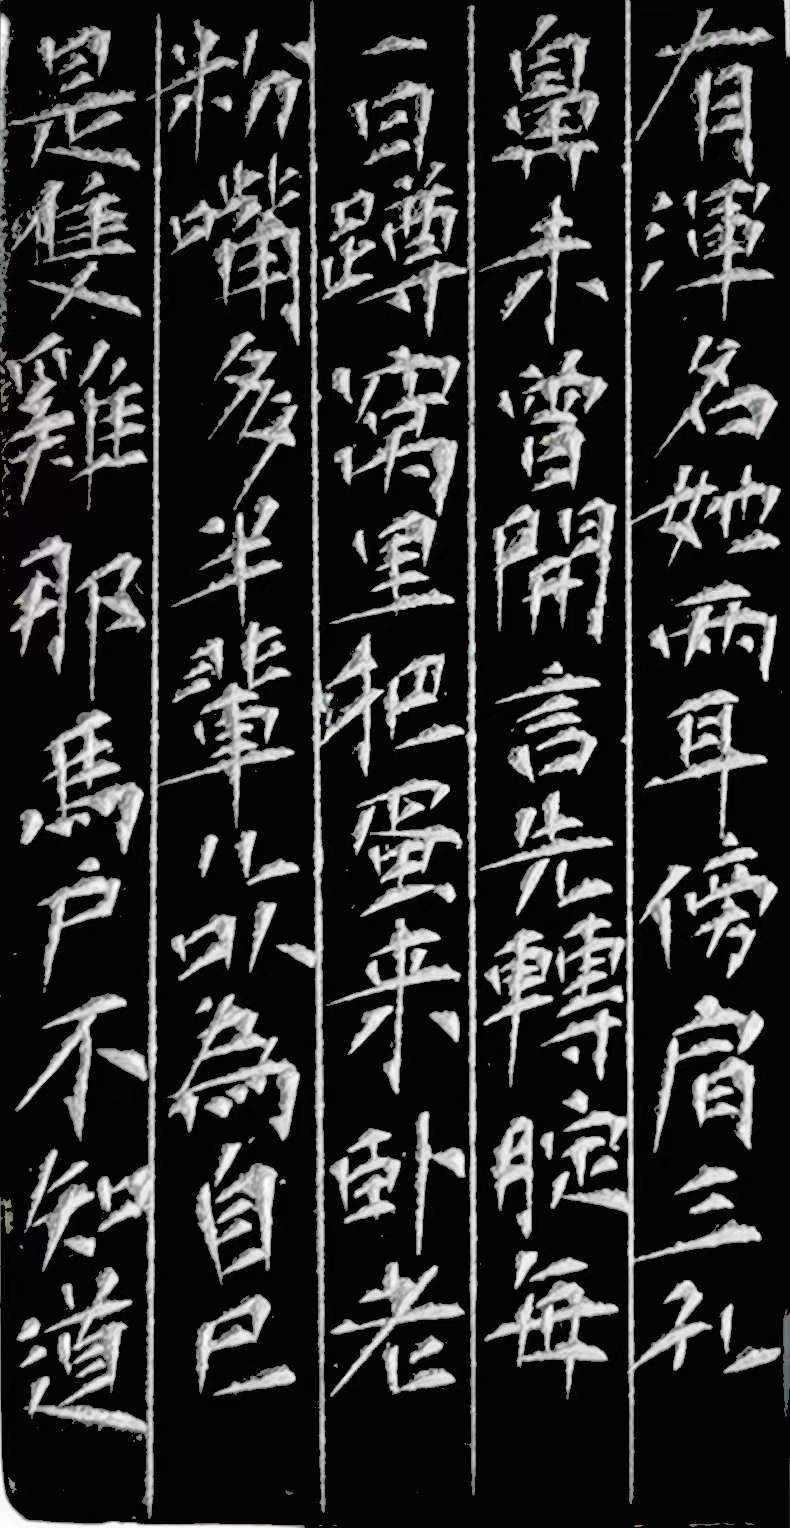 有渾名她兩耳傍肩三孔
鼻未曾開言先轉腚每
一日蹲窩里把蛋来卧老
粉嘴多半輩儿以為自己
是隻雞那馬户不知道